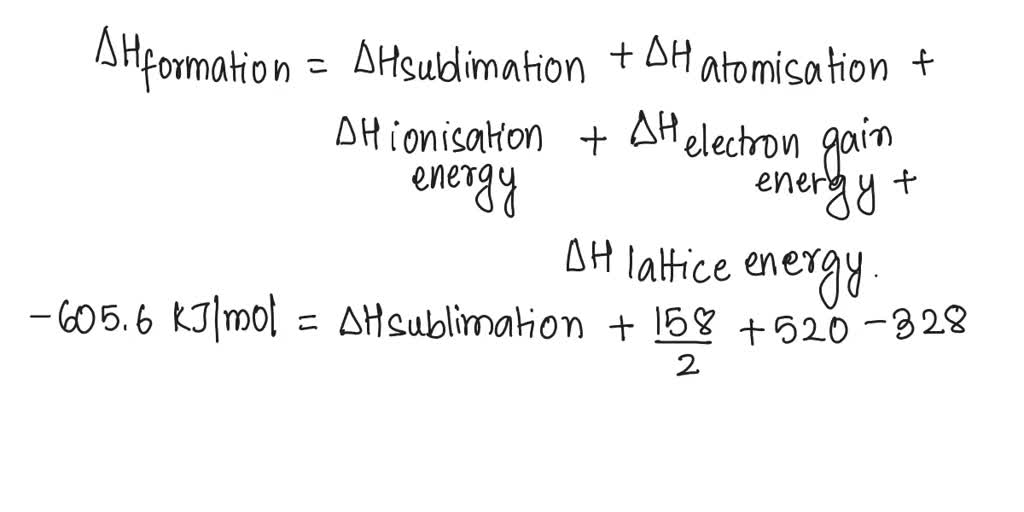 ΔHformation = ΔHsublimation + ΔH atomisation +
ΔH ionisation energy + ΔH electron gain energy +
ΔH lattice energy.
-605.6 KJ|mol = ΔHsublimation + 158/2 + 520 - 328